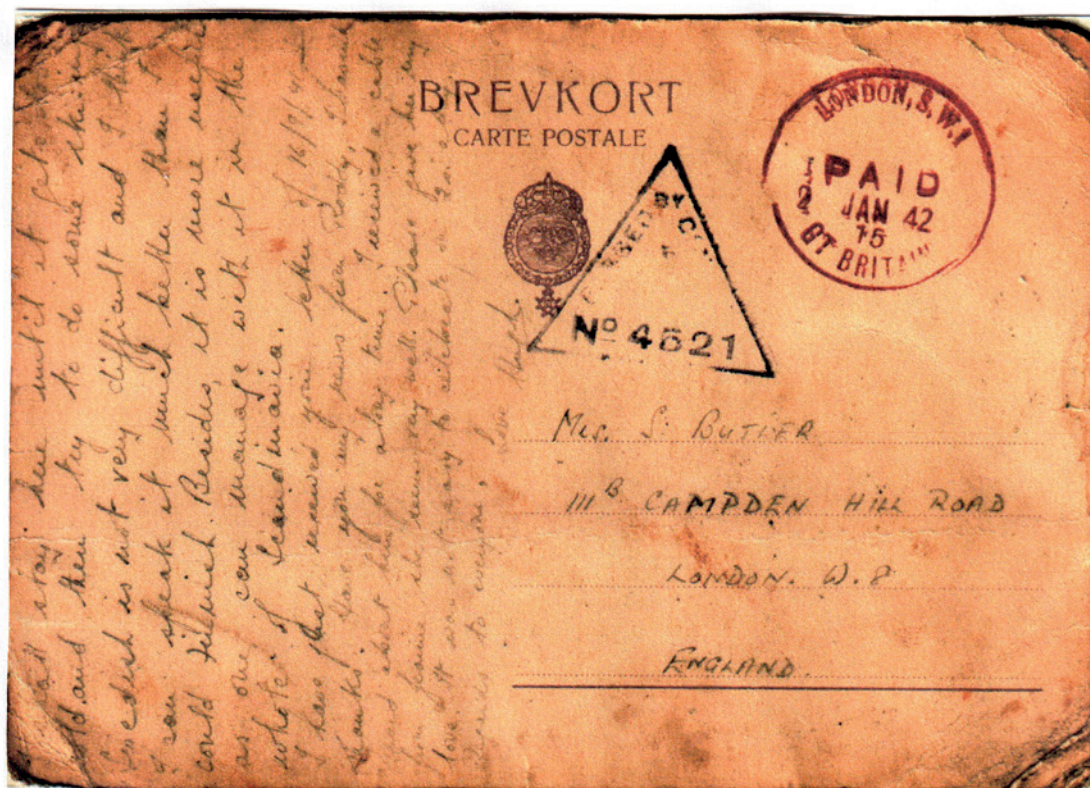 BREVKORT
CARTE POSTALE
LONDON, S.W.1
PAID
2 JAN 42
15
GT BRITAIN
BY C
No 4621
Mrs. S. BUTLER
111B CAMPDEN HILL ROAD
LONDON. W.8
ENGLAND.
shall stay here until it gets
cold and then try to do some skiing
Swedish is not very difficult and I think
I can speak it much better than I
could Finnish. Besides, it is more useful
as one can manage with it in the
whole of Scandinavia.
I have just received your letter of 16/9/41
Thanks. Have you any news from Rody, I have
not heard him for a long time. I received a cable
from she very well. Please give her my
love. It was not easy to
to everyone,